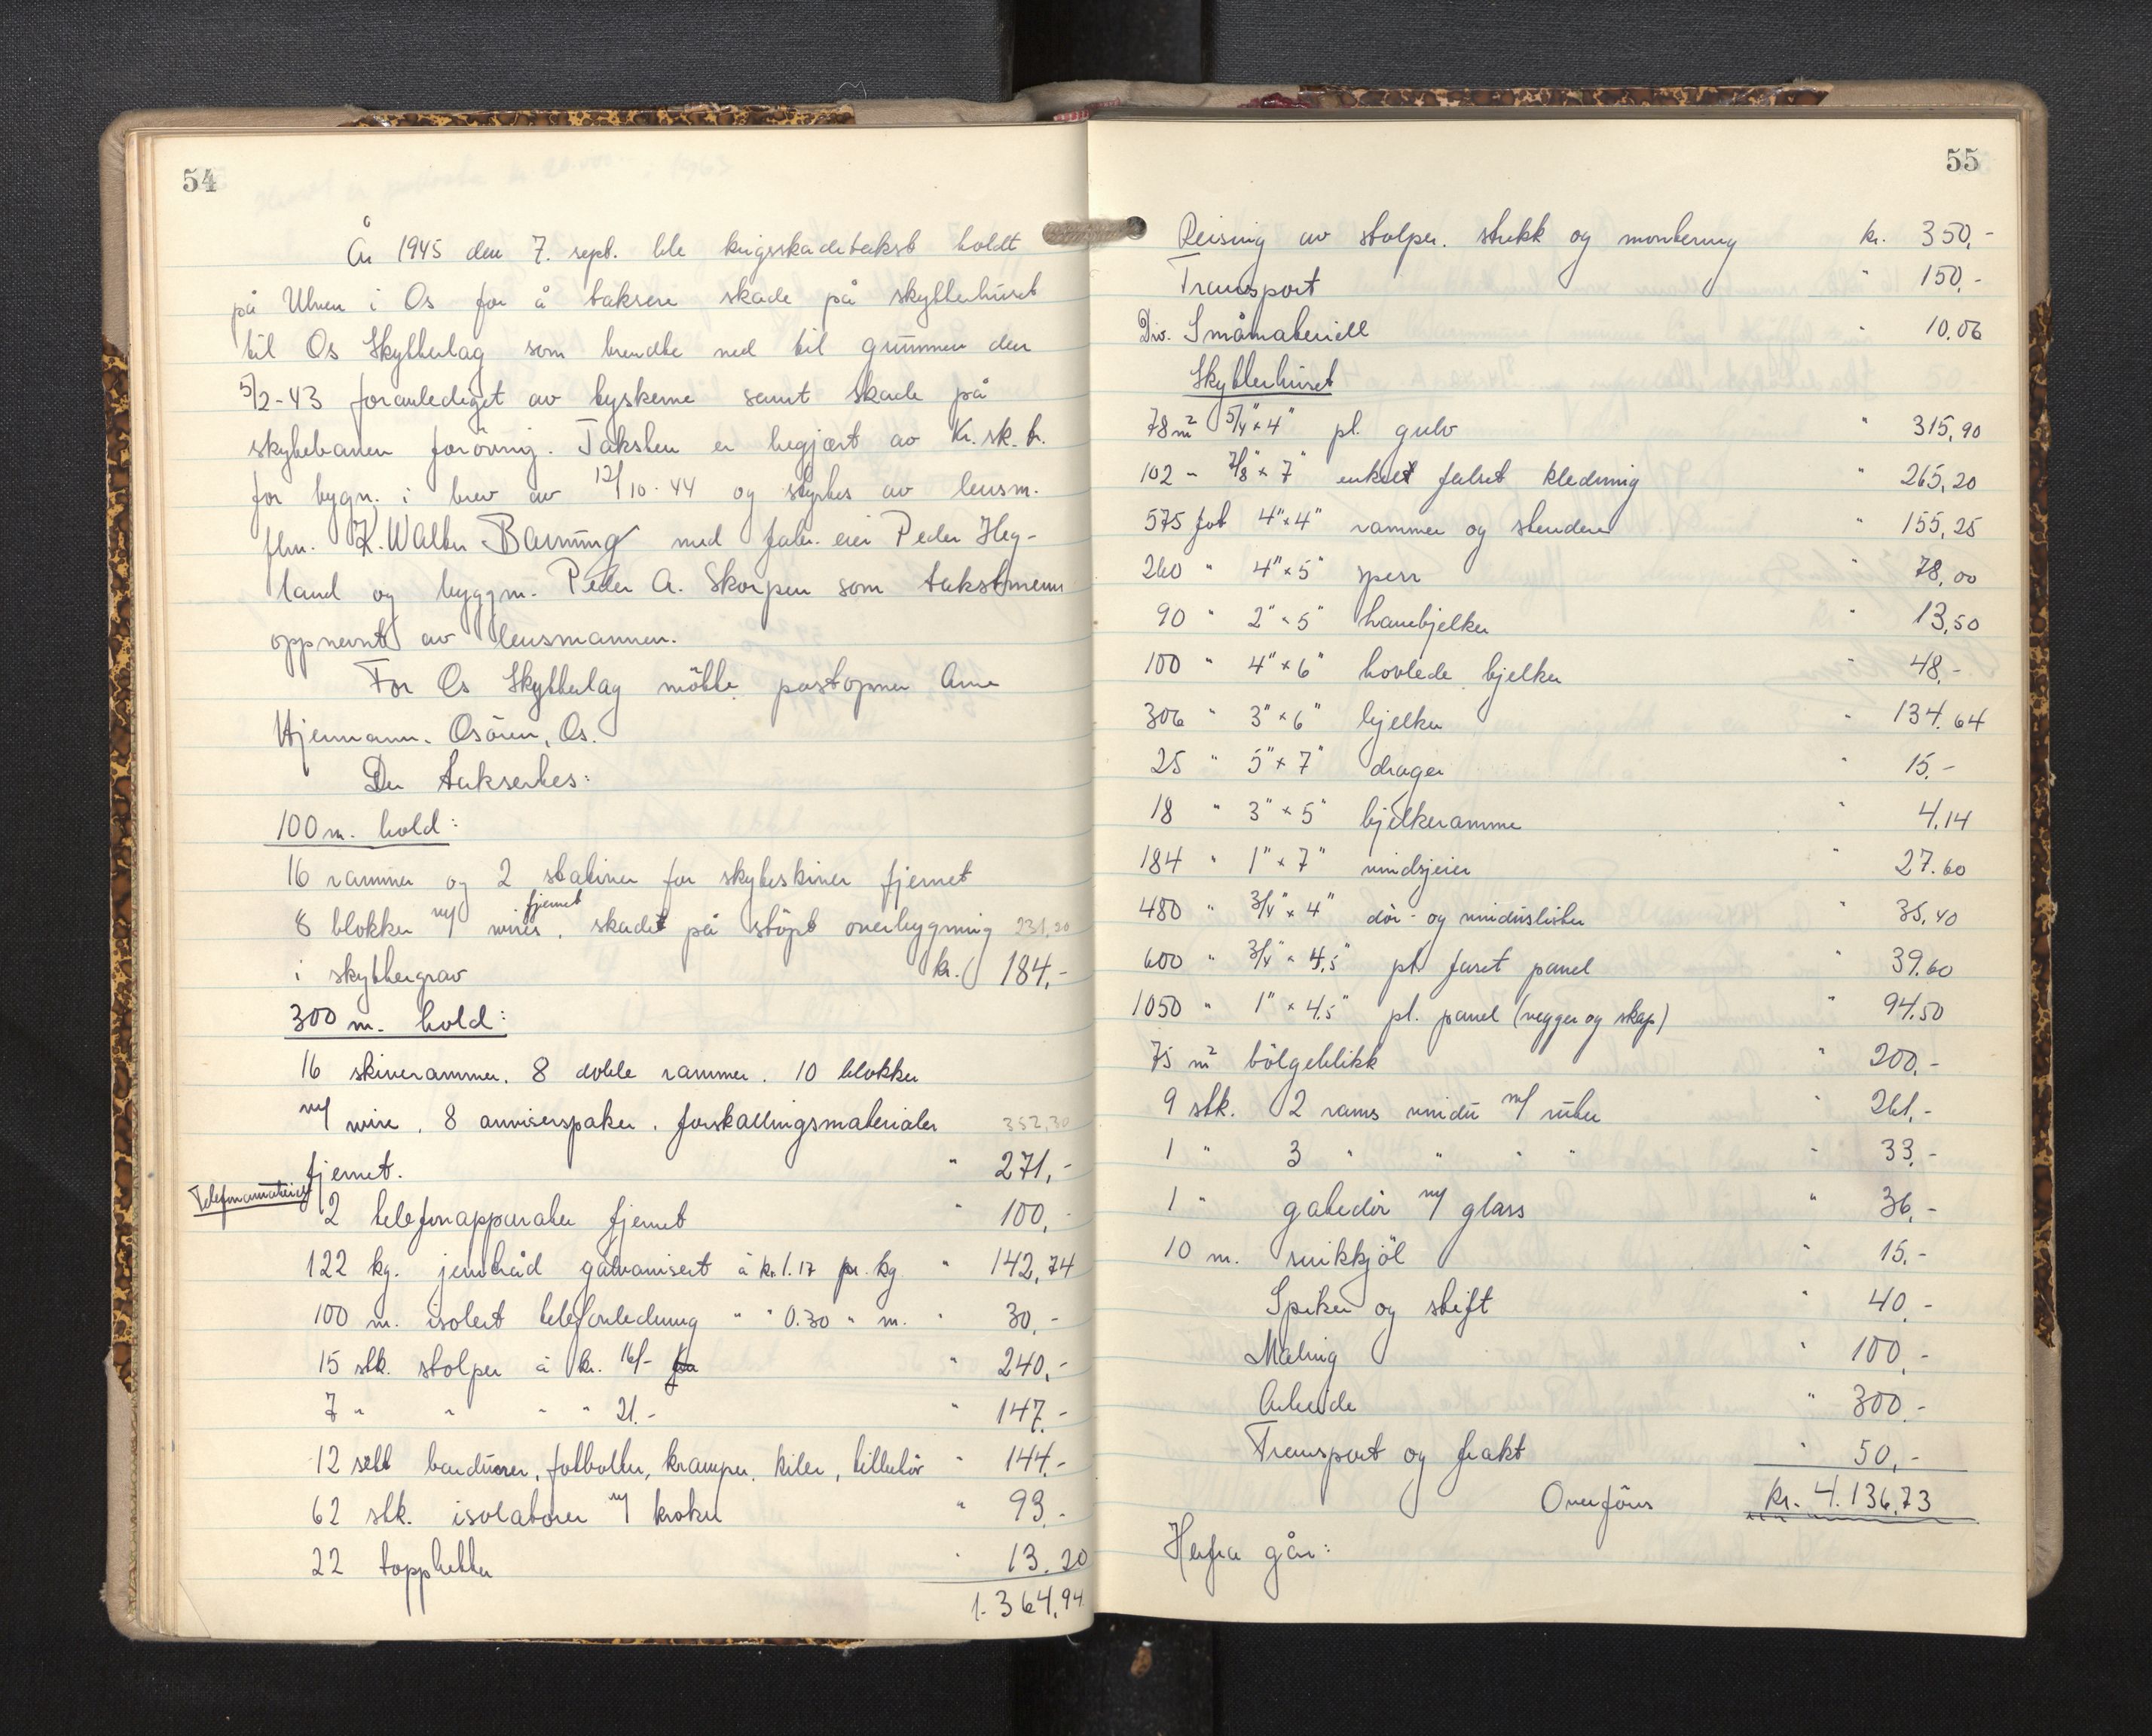 54
År 1945 den 7. sept. ble krigsskadetakst holdt
på Ulven i Os for å taksere skade på skytterhuset
til Os Skytterlag som brendte ned til grunnen den
5/2-43 foranlediget av tyskerne samt skade på
skytebanen forövrig. Taksten er begjært av Kr.sk.tr.
for bygn. i brev av 12/10-44 og styrtes av lensm.
flm. K. Walter Barning med fabr. eier Peder Heg-
land og byggm. Peder A. Skorpen som takstmenn
oppnevnt av lensmannen.
For Os Skytterlag mötte postopner Arne
Hjermann. Osören, Os.
Der takserties:
100 m. hold:
16 rammer og 2 stativer for skyteskiver fjernet
8 blokker m/ wirer fjernet, skadet på stöpt overbygning 231,20
i skyttergrav kr. 184,-
300 m. hold:
16 skiverammer. 8 doble rammer. 10 blokker
m/ wire, 8 anviserspaker, forskallingsmaterialer 352,30
fjernet. " 271,-
Telefonmateriell
2 telefonapparater fjernet " 100,-
122 kg. jerntråd galvanisert à kr. 1.17 pr. kg " 142,74
100 m. isolert telefonledning " " 0.30 " m. " 30,-
15 stk. stolper à kr. 16/- " 240,-
7 " " " " 21.- " 147.-
12 sett barduner, fotbolter, kramper, kiler, tilbehör " 144.-
62 stk. isolatorer m/ kroker " 93.-
22 topphetter " 13.20
1.364,94
55
Reising av stolper, strekk og montering kr. 350,-
Transport " 150,-
Div. Småmateriell " 10.06
Skytterhuset
78 m² 5/4" x 4" pl. gulv " 315,90
102 - 7/8" x 7" enkelt falset kledning " 265,20
575 fot 4" x 4" rammer og stendere " 155,25
260 " 4" x 5" sperr " 78,00
90 " 2" x 5" hanebjelker " 13,50
100 " 4" x 6" hovlede bjelker " 48,-
306 " 3" x 6" bjelker " 134.64
25 " 5" x 7" drager " 15.-
18 " 3" x 5" bjelkeramme " 4.14
184 " 1" x 7" vindsjeier " 27.60
480 " 3/4" x 4" dör- og vinduslister " 35,40
600 " 3/4" x 4,5" pl. faset panel " 39.60
1050 " 1" x 4,5" pl. panel (vegger og skap) " 94.50
75 m² bölgeblikk " 200,-
9 stk. 2 rams vindu m/ ruter " 261,-
1 " 3 " " " " " 33.-
1 " gatedör m/ glass " 36,-
10 m. sinkkjöl " 15.-
Spiker og stift " 40.-
Maling " 100,-
Arbeide " 300.-
Transport og frakt " 50,-
Overföres kr. 4.136,73
Herfra går: